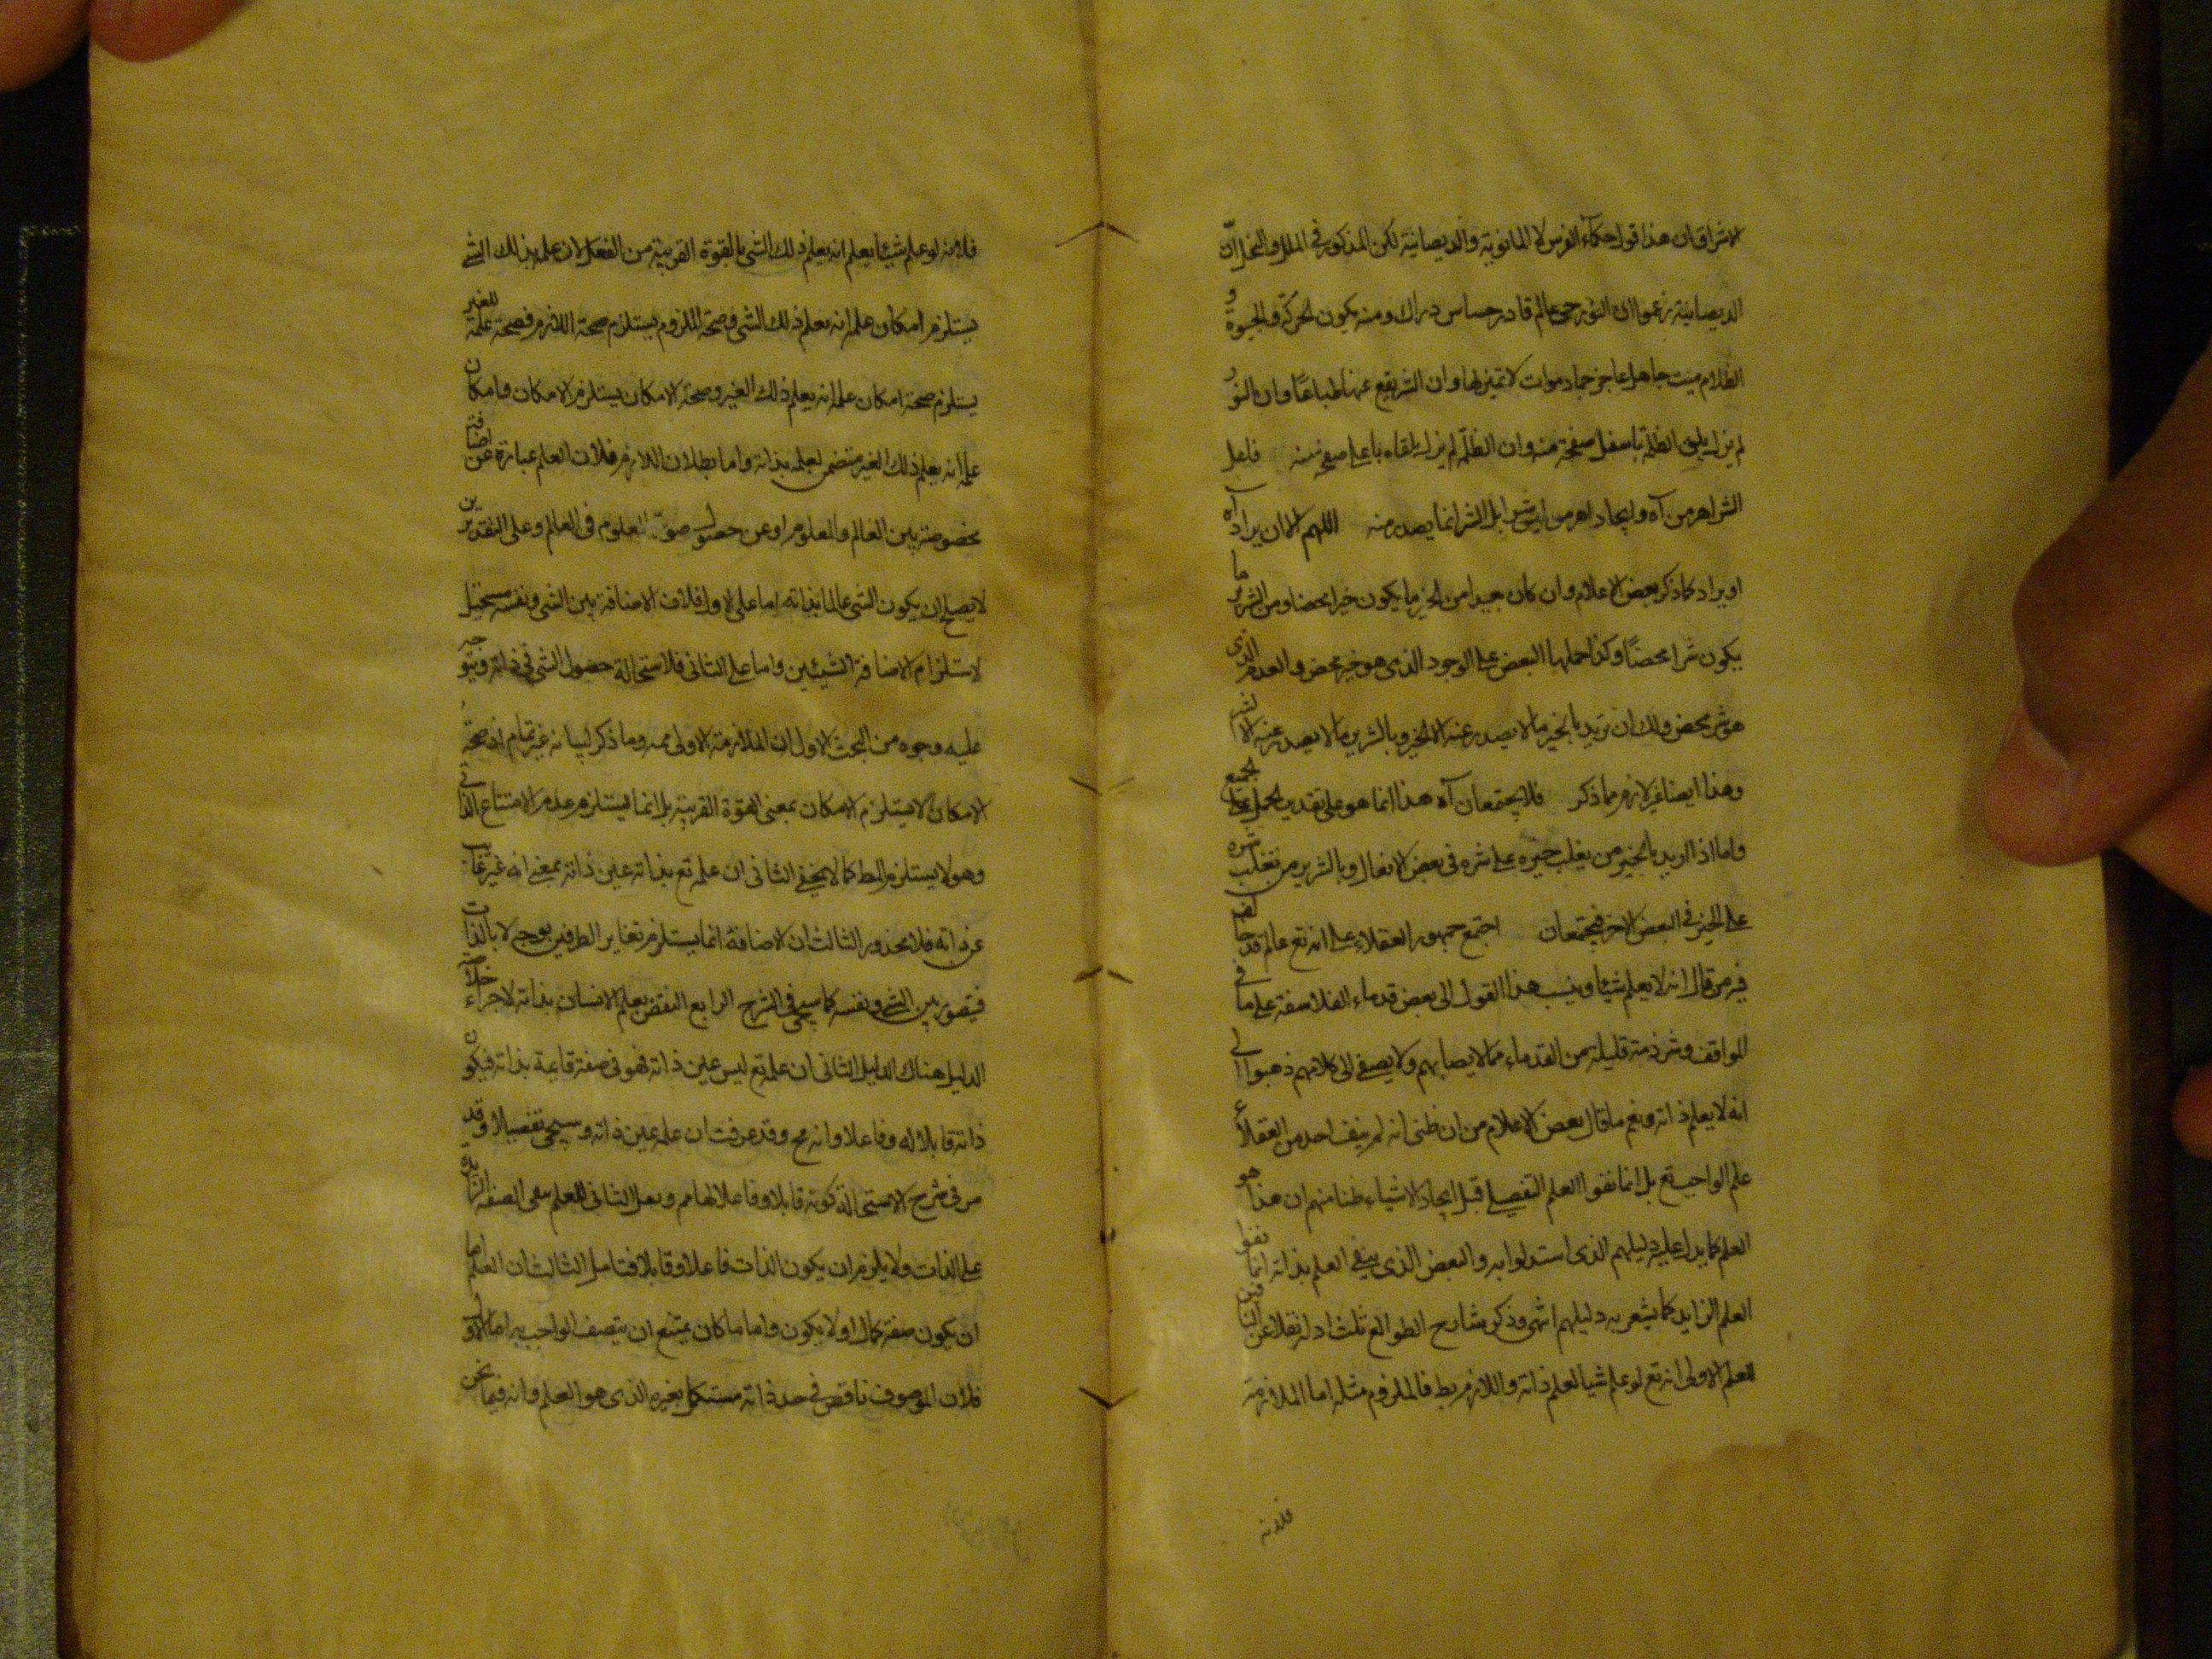 الاشراق ان هذا قول حكماء الفرس لا المانوية والديصانية لكن المذكور فى الملل والنحل ان
الديصانية زعموا ان النور حى عالم قادر حساس دراك ومنه يكون الحركة والحيوة و
الظلام ميت جاهل عاجز جماد موات لا تميز لها وان الشر يقع عنها طباعا وان النور
لم يزل يلقى الظلمة باسفل صفحة منه وان الظلمة لم يزل يلقاه باعلى صفحة منه فلعل
الشر اهرمن آه وايجاد اهرمن ليس شرا بل الشر انما يصدر منه اللهم الا ان يراد آه
او يراد كما ذكر بعض الاعلام وان كان بعيدا من الخير ما يكون خيرا محضا ومن الشرير ما
يكون شرا محضا وكذا حملها البعض على الوجود الذى هو خير محض والعدم الذى
هو شر محض ولك ان تريد بالخير ما لا يصدر عنه الا الخير وبالشرير ما لا يصدر عنه الا الشر
وهذا ايضا غير لازم مما ذكر فلا يجتمعان آه هذا انما هو على تقدير الحمل على
واما اذا اريد بالخير من يغلب خيره على شره فى بعض الافعال وبالشرير من تغلب شره
على الخير فى البعض الاخر فيجتمعان اجتمع جمهور العقلاء على انه تع عالم قد خالف
فيه من قال انه لا يعلم شيئا وينسب هذا القول الى بعض قدماء الفلاسفة على ما فى
المواقف وشرذمة قليلة من القدماء مما لا يصابهم ولا يصغى الى كلامهم ذهبوا الى
انه لا يعلم ذاته ونعم ما قال بعض الاعلام من ان ظنى انه لم ينف احد من العقلاء
علم الواجب تع بل انما نفوا العلم التفصيلى قبل ايجاد الاشياء ظنا منهم ان هذا هو
العلم كما يدل عليه دليلهم الذى استدلوا به والبعض الذى ينفى العلم بذاته انما نفوا
العلم الزايد كما يشعر به دليلهم انتهى وذكر شارح الطوالع ثلث ادلة نقلا عن النافين
للعلم الاولى انه تع لو علم شيئا لعلم ذاته واللازم بط فالملزوم مثله اما الملازمة
فلانه
فلانه لو علم شيئا يعلم انه يعلم ذلك الشى بالقوة القريبة من الفعل لان علمه بذلك الشى
يستلزم امكان علمه انه يعلم ذلك الشى وصحة الملزوم يستلزم صحة اللازم فصحة علمه للغير
يستلزم صحة امكان علمه انه يعلم ذلك الغير وصحة الامكان يستلزم الامكان وامكان
علمه انه يعلم ذلك الغير متضمن لعلمه بذاته واما بطلان اللازم فلان العلم عبارة عن اضافة
مخصوصة بين العالم والمعلوم او عن حصول صورة المعلوم فى العالم وعلى التقديرين
لا يصح ان يكون الشى عالما بذاته اما على الاول فلان الاضافة بين الشى ونفسه مستحيل
لاستلزام الاضافة الشيئين واما على الثانى فلاستحالة حصول الشى فى ذاته ويتوجه
عليه وجوه من البحث الاول ان الملازمة الاولى مم وما ذكر لبيانه غير تمام اذ صحة
الامكان لا يستلزم الامكان بمعنى القوة القريبة بل انما يستلزم عدم الامتناع الذاتى
وهو لا يستلزم المط كما لا يخفى الثانى ان علمه تع بذاته عين ذاته بمعنى انه غير غايب
عن ذاته فلا محذور الثالث ان الاضافة انما يستلزم تغاير الطرفين بوجه لا بالذات
فيتصور بين الشى ونفسه كما سيجى فى الشرح الرابع النقض بعلم الانسان بذاته لاجراء خلاصة
الدليل هناك الدليل الثانى ان علمه تع ليس عين ذاته فهو فى صفة قايمة بذاته فيكون
ذاته قابلا له وفاعلا وانه مح وقد عرفت ان علمه عين ذاته وسيجى تفصيلا وقد
مر فى شرح الاستحالة كونه قابلا وفاعلا لهامم ولعل الثانى للعلم نفى الصفة الزايدة
على الذات ولا يلزم ان يكون الذات فاعلا وقابلا فتامل الثالث ان العلم اما
ان يكون صفة كمال او لا يكون واما ما كان يمتنع ان يتصف الواجب به اما الاول
فلان الموصوف ناقص فى حد ذاته مستكمل بغيره الذى هو العلم وانه فيما نحن